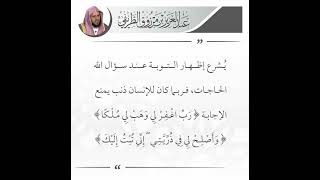 عبد العزيز بن مرزوق الطريفي
يُشرع إظهار التوبة عند سؤال الله
الحاجات، فربما كان للإنسان ذنب يمنع
الإجابة ﴿ رَبِّ اغْفِرْ لِي وَهَبْ لِي مُلْكًا ﴾
﴿ وَأَصْلِحْ لِي فِي ذُرِّيَّتِي ۖ إِنِّي تُبْتُ إِلَيْكَ ﴾